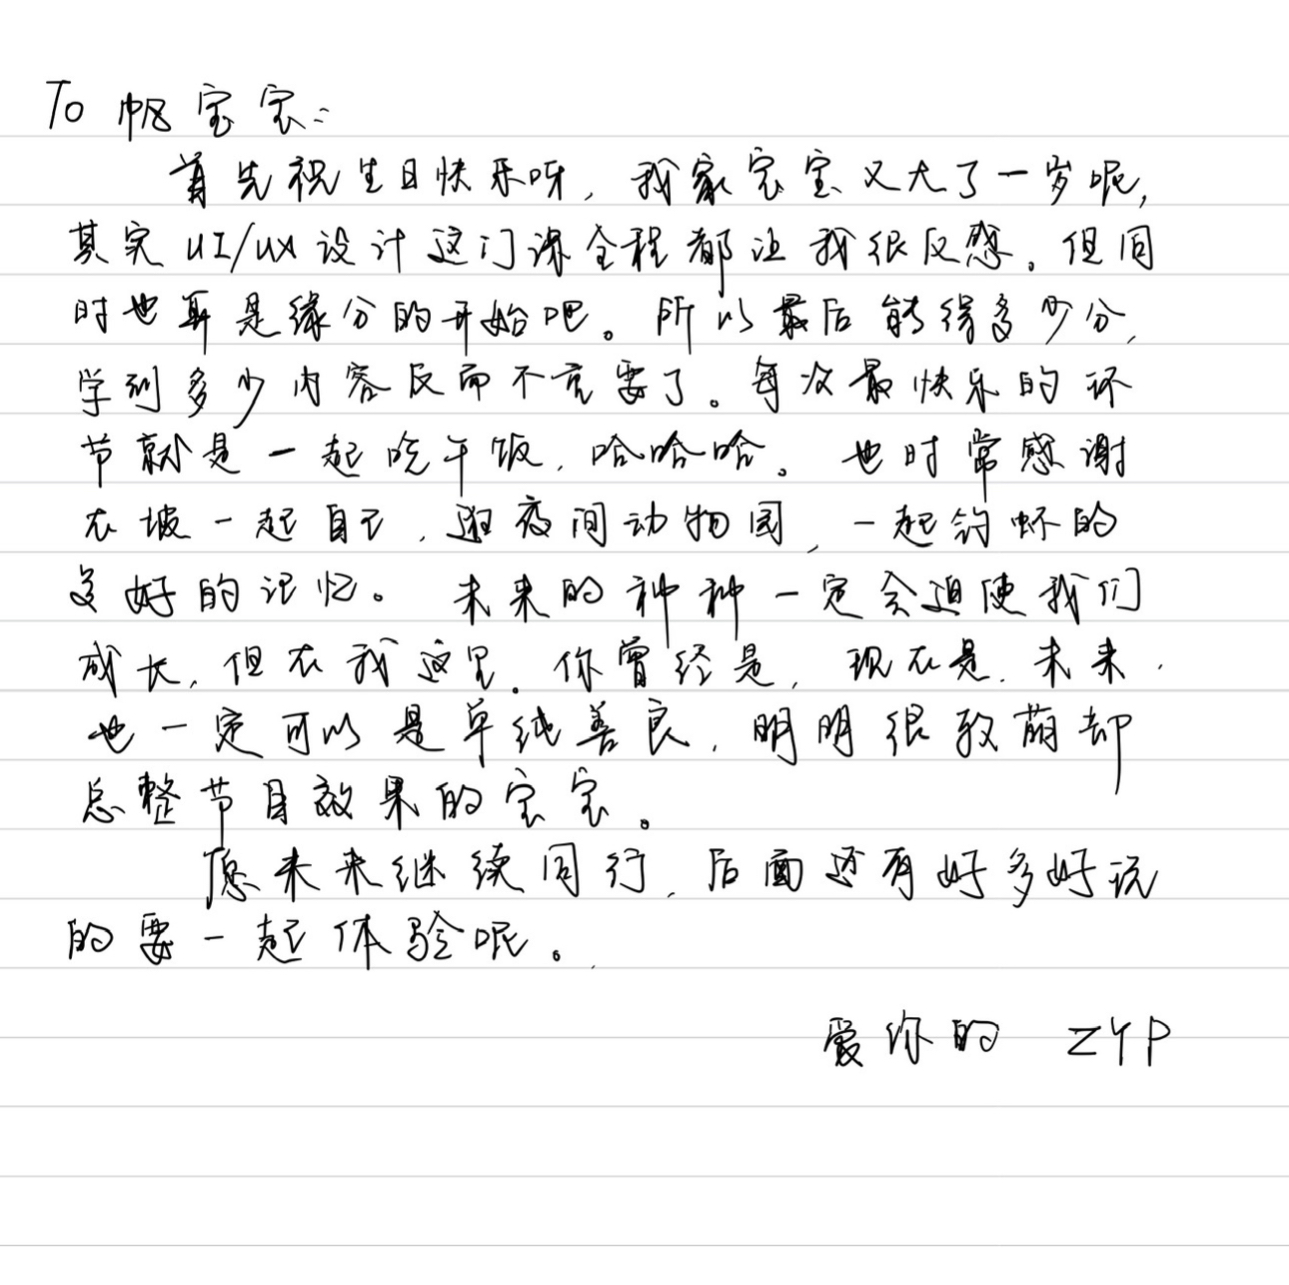 To 帆宝宝:
首先祝生日快乐呀，我家宝宝又大了一岁呢，
其实 UI/UX 设计这门课全程都让我很反感。但同
时也算是缘分的开始吧。所以最后能得多少分，
学到多少内容反而不重要了。每次最快乐的环
节就是一起吃午饭，哈哈哈。也时常感谢
在坡一起自己，逛夜间动物园，一起钓虾的
美好的记忆。未来的种种一定会迫使我们
成长，但在我这里。你曾经是，现在是，未来
也一定可以是单纯善良，明明很软萌却
总整节目效果的宝宝。
愿未来继续同行，后面还有好多好玩
的要一起体验呢。
爱你的 ZYP